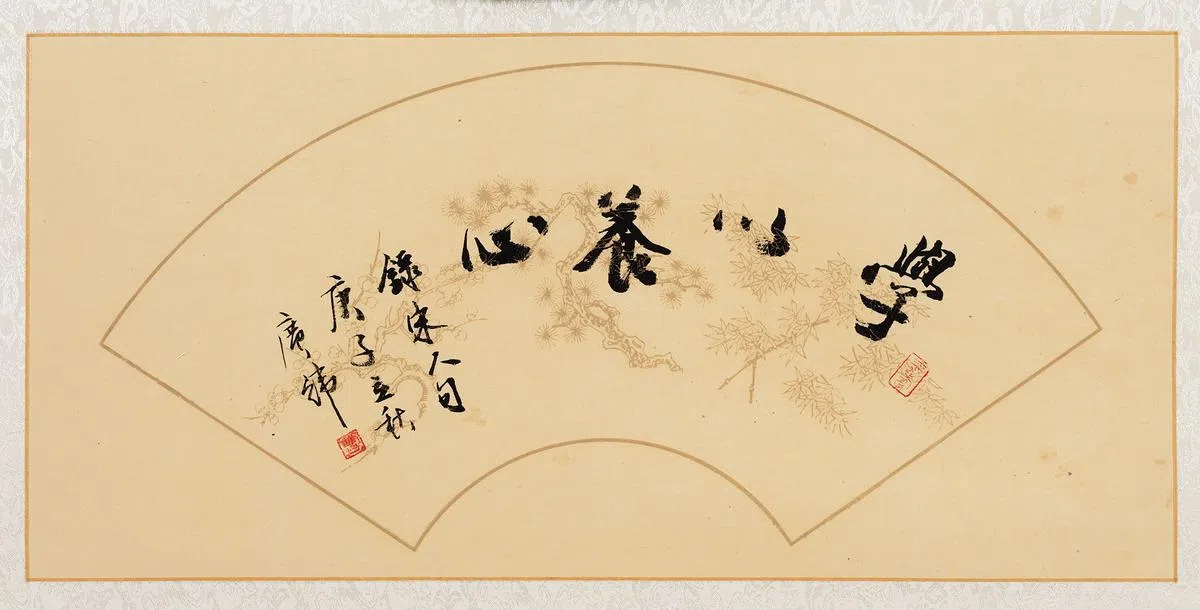 學以養心
錄宋人句
庚子立秋
廣緯